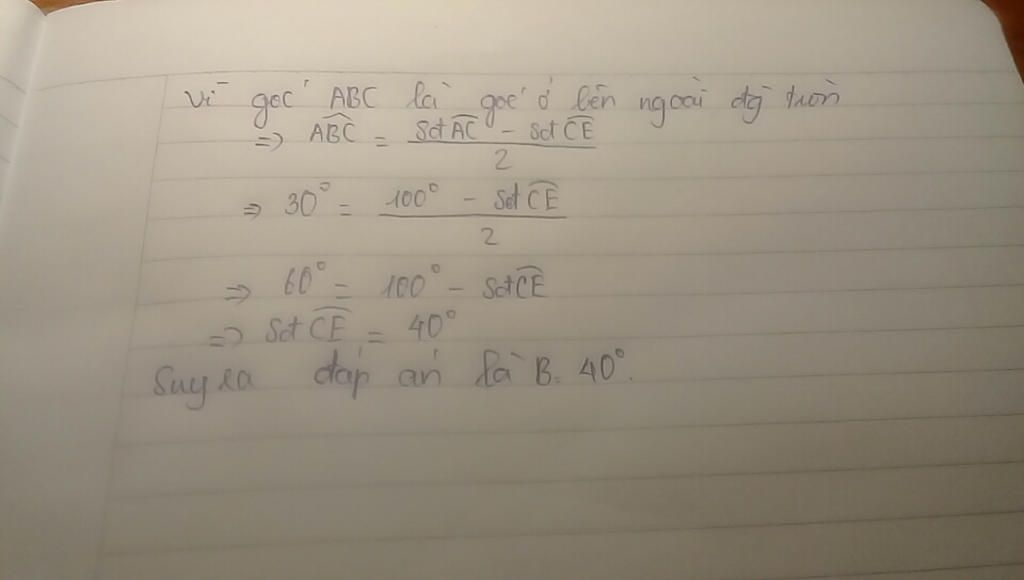 Vì góc ABC là góc ở bên ngoài đg tròn
=> ABC = (sđt AC - sđt CE) / 2
=> 30° = (100° - sđt CE) / 2
=> 60° = 100° - sđt CE
=> sđt CE = 40°
Suy ra đáp án là B. 40°.